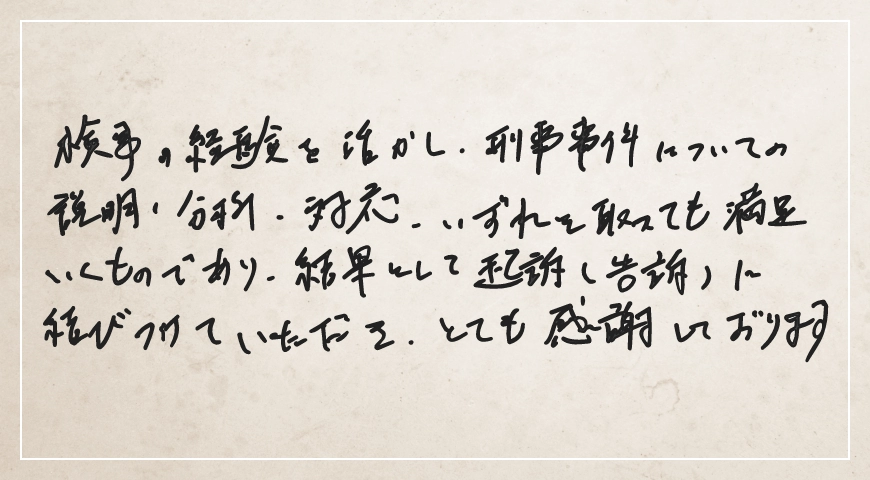 検事の経験を活かし、刑事事件についての
説明・分析・対応、いずれを取っても満足
いくものであり、結果として起訴(告訴)に
結びつけていただき、とても感謝しております